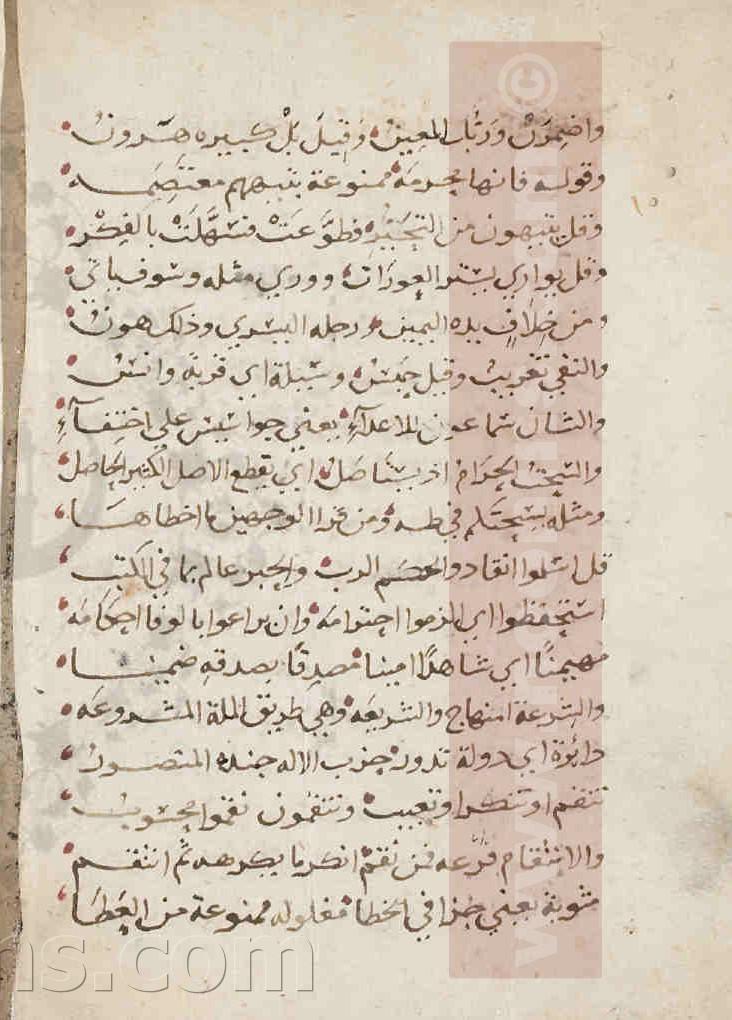 واضمرن وربك المعين وقيل بل كبيره هرون
وقوله فانها محرمة ممنوعة بتيههم معتصمه
وقل يتيهون من التحير فطوعت فسهلت بالفكر
وقل يواري يستر العورات ووري مثله وسوف ياتي
ومن خلاف يده اليمين ورجله اليسري وذلك هون
والنفي تغريب وقيل حبس وسيلة اي قربة وانس
والشان سماعون للاعداء يعني جواسيس علي اختفاء
والسحت الحرام اذ يستاصل اي يقطع الاصل الكثير الحاصل
ومثله يسحتكم في طه ومن قرا الوجهين ما اخطاها
قل اسلموا انقادوا لحكم الرب والحبر عالم بما في الكتب
استحفظوا اي الزموا احترامه وان يراعوا بالوفا احكامه
مهيمنا اي شاهدا امينا مصدقا بصدقه ضمينا
والشرعة المنهاج والشريعه وهي طريق الملة المشروعه
دائرة اي دولة تدور حزب الاله جنده المنصور
تنقم او تنكر او تعيب وتنقمون نقموا محسوب
والانتقام فرعه فمن نقم انكر ما يكرهه ثم انتقم
مثوبة يعني جزا في الخطا مغلوله ممنوعة من العطا
©
www.
ns.com